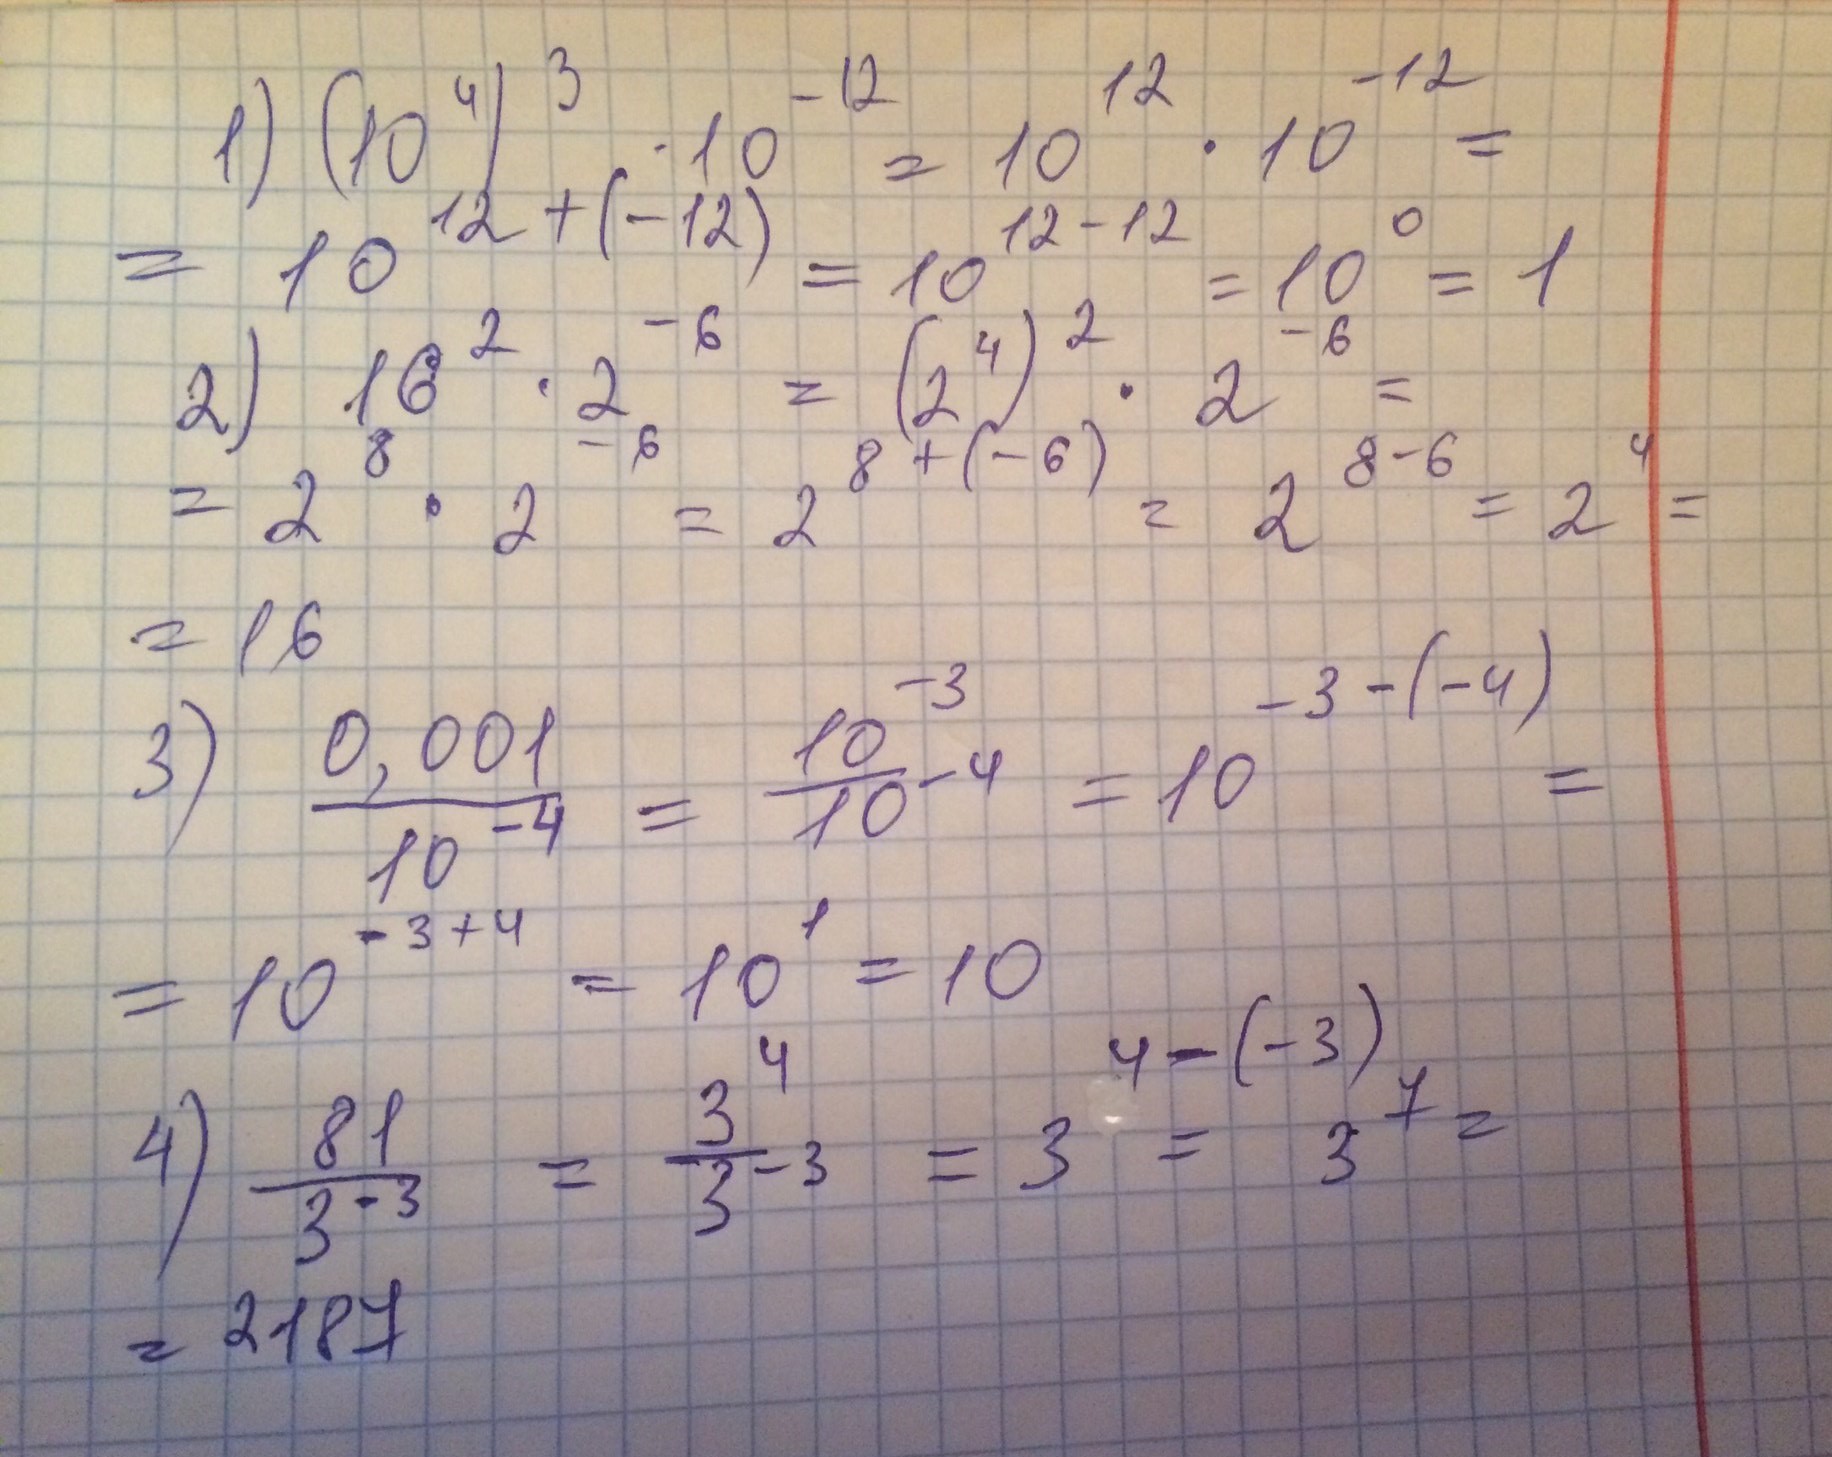 1) (10⁴)³ · 10⁻¹² = 10¹² · 10⁻¹² =
= 10¹²⁺⁽⁻¹²⁾ = 10¹²⁻¹² = 10⁰ = 1
2) 16² · 2⁻⁶ = (2⁴)² · 2⁻⁶ =
= 2⁸ · 2⁻⁶ = 2⁸⁺⁽⁻⁶⁾ = 2⁸⁻⁶ = 2⁴ =
= 16
3) 0,001/10⁻⁴ = 10⁻³/10⁻⁴ = 10⁻³⁻⁽⁻⁴⁾ =
= 10⁻³⁺⁴ = 10¹ = 10
4) 81/3⁻³ = 3⁴/3⁻³ = 3⁴⁻⁽⁻³⁾ = 3⁷ =
= 2187